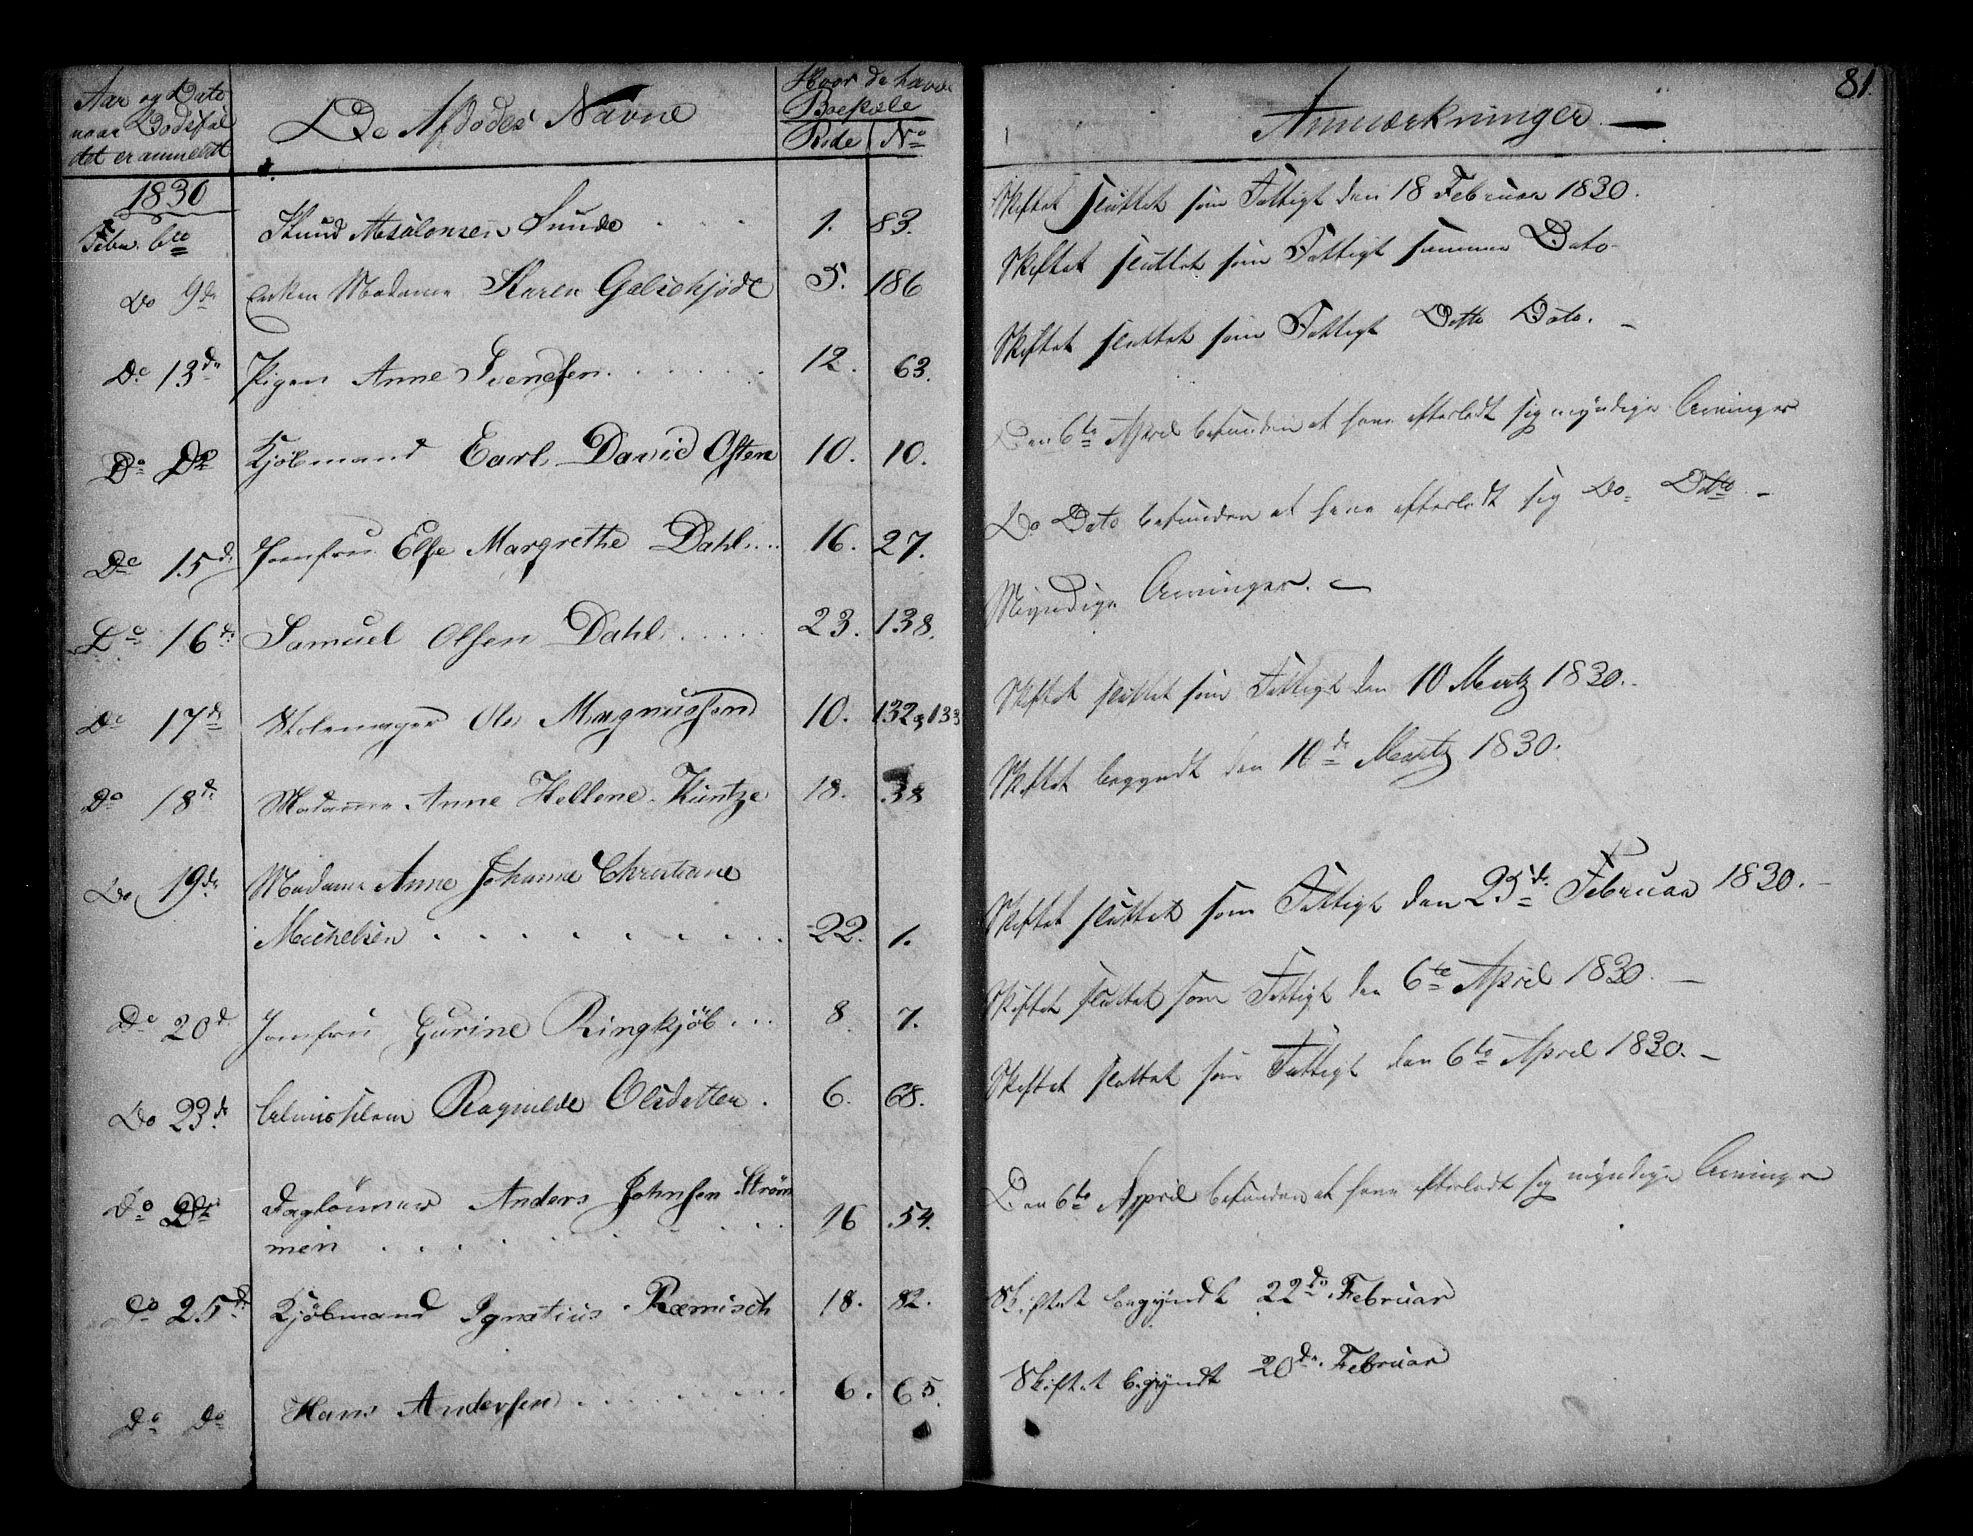 Aar og Dato
naar Dødsfal
det er anmeldt
De Afdødes Navne
Hvor de havde
Boepæle
Rode No
1830
Febr. 6te Knud Absalonsen Sunde 1. 83.
Do 9de Enken Madame Karen Gelschjødt 5. 186
Do 13de Pigen Anne Svendsen 12. 63.
Do Do Kjøbmand Carl David Osten 10. 10.
Do 15de Jomfru Else Margrethe Dahl 16. 27.
Do 16de Samuel Olsen Dahl 23. 138.
Do 17de Stolemager Ole Magnussen 10. 132 og 133
Do 18de Madame Anne Hellene Küntze 18. 38
Do 19de Madame Anne Johanne Christiane
Michelsen 22. 1.
Do 20de Jomfru Gurine Ringkjøb 8. 7.
Do 23de Ragnilde Olsdatter 6. 68.
Do Do Dagleonner Anders Johnsen Strøm
men 16 54.
Do 25de Kjøbmand Ignatius Ræmisch 18. 82.
Do Do Hans Andersen 6. 65
81.
Anmærkninger
Skiftet sluttet som Fattigt den 18 Februar 1830.
Skiftet sluttet som Fattigt samme Dato
Skiftet sluttet som Fattigt Ditto Dato.
Den 6te April befunden at have efterladt sig myndige Arvinger
Do Dato befunden at have efterladt sig Do Ditto
Myndige Arvinger.
Skiftet sluttet som Fattigt den 10 Martz 1830.
Skiftet begyndt den 10de Martz 1830.
Skiftet sluttet som Fattigt den 25de Februar 1830.
Skiftet sluttet som Fattigt den 6te April 1830.
Skiftet sluttet som Fattigt den 6te April 1830.
Den 6te April befunden at have efterladt sig myndige Arvinger
Skiftet begyndt 22de Februar
Skiftet begyndt 20de Februar